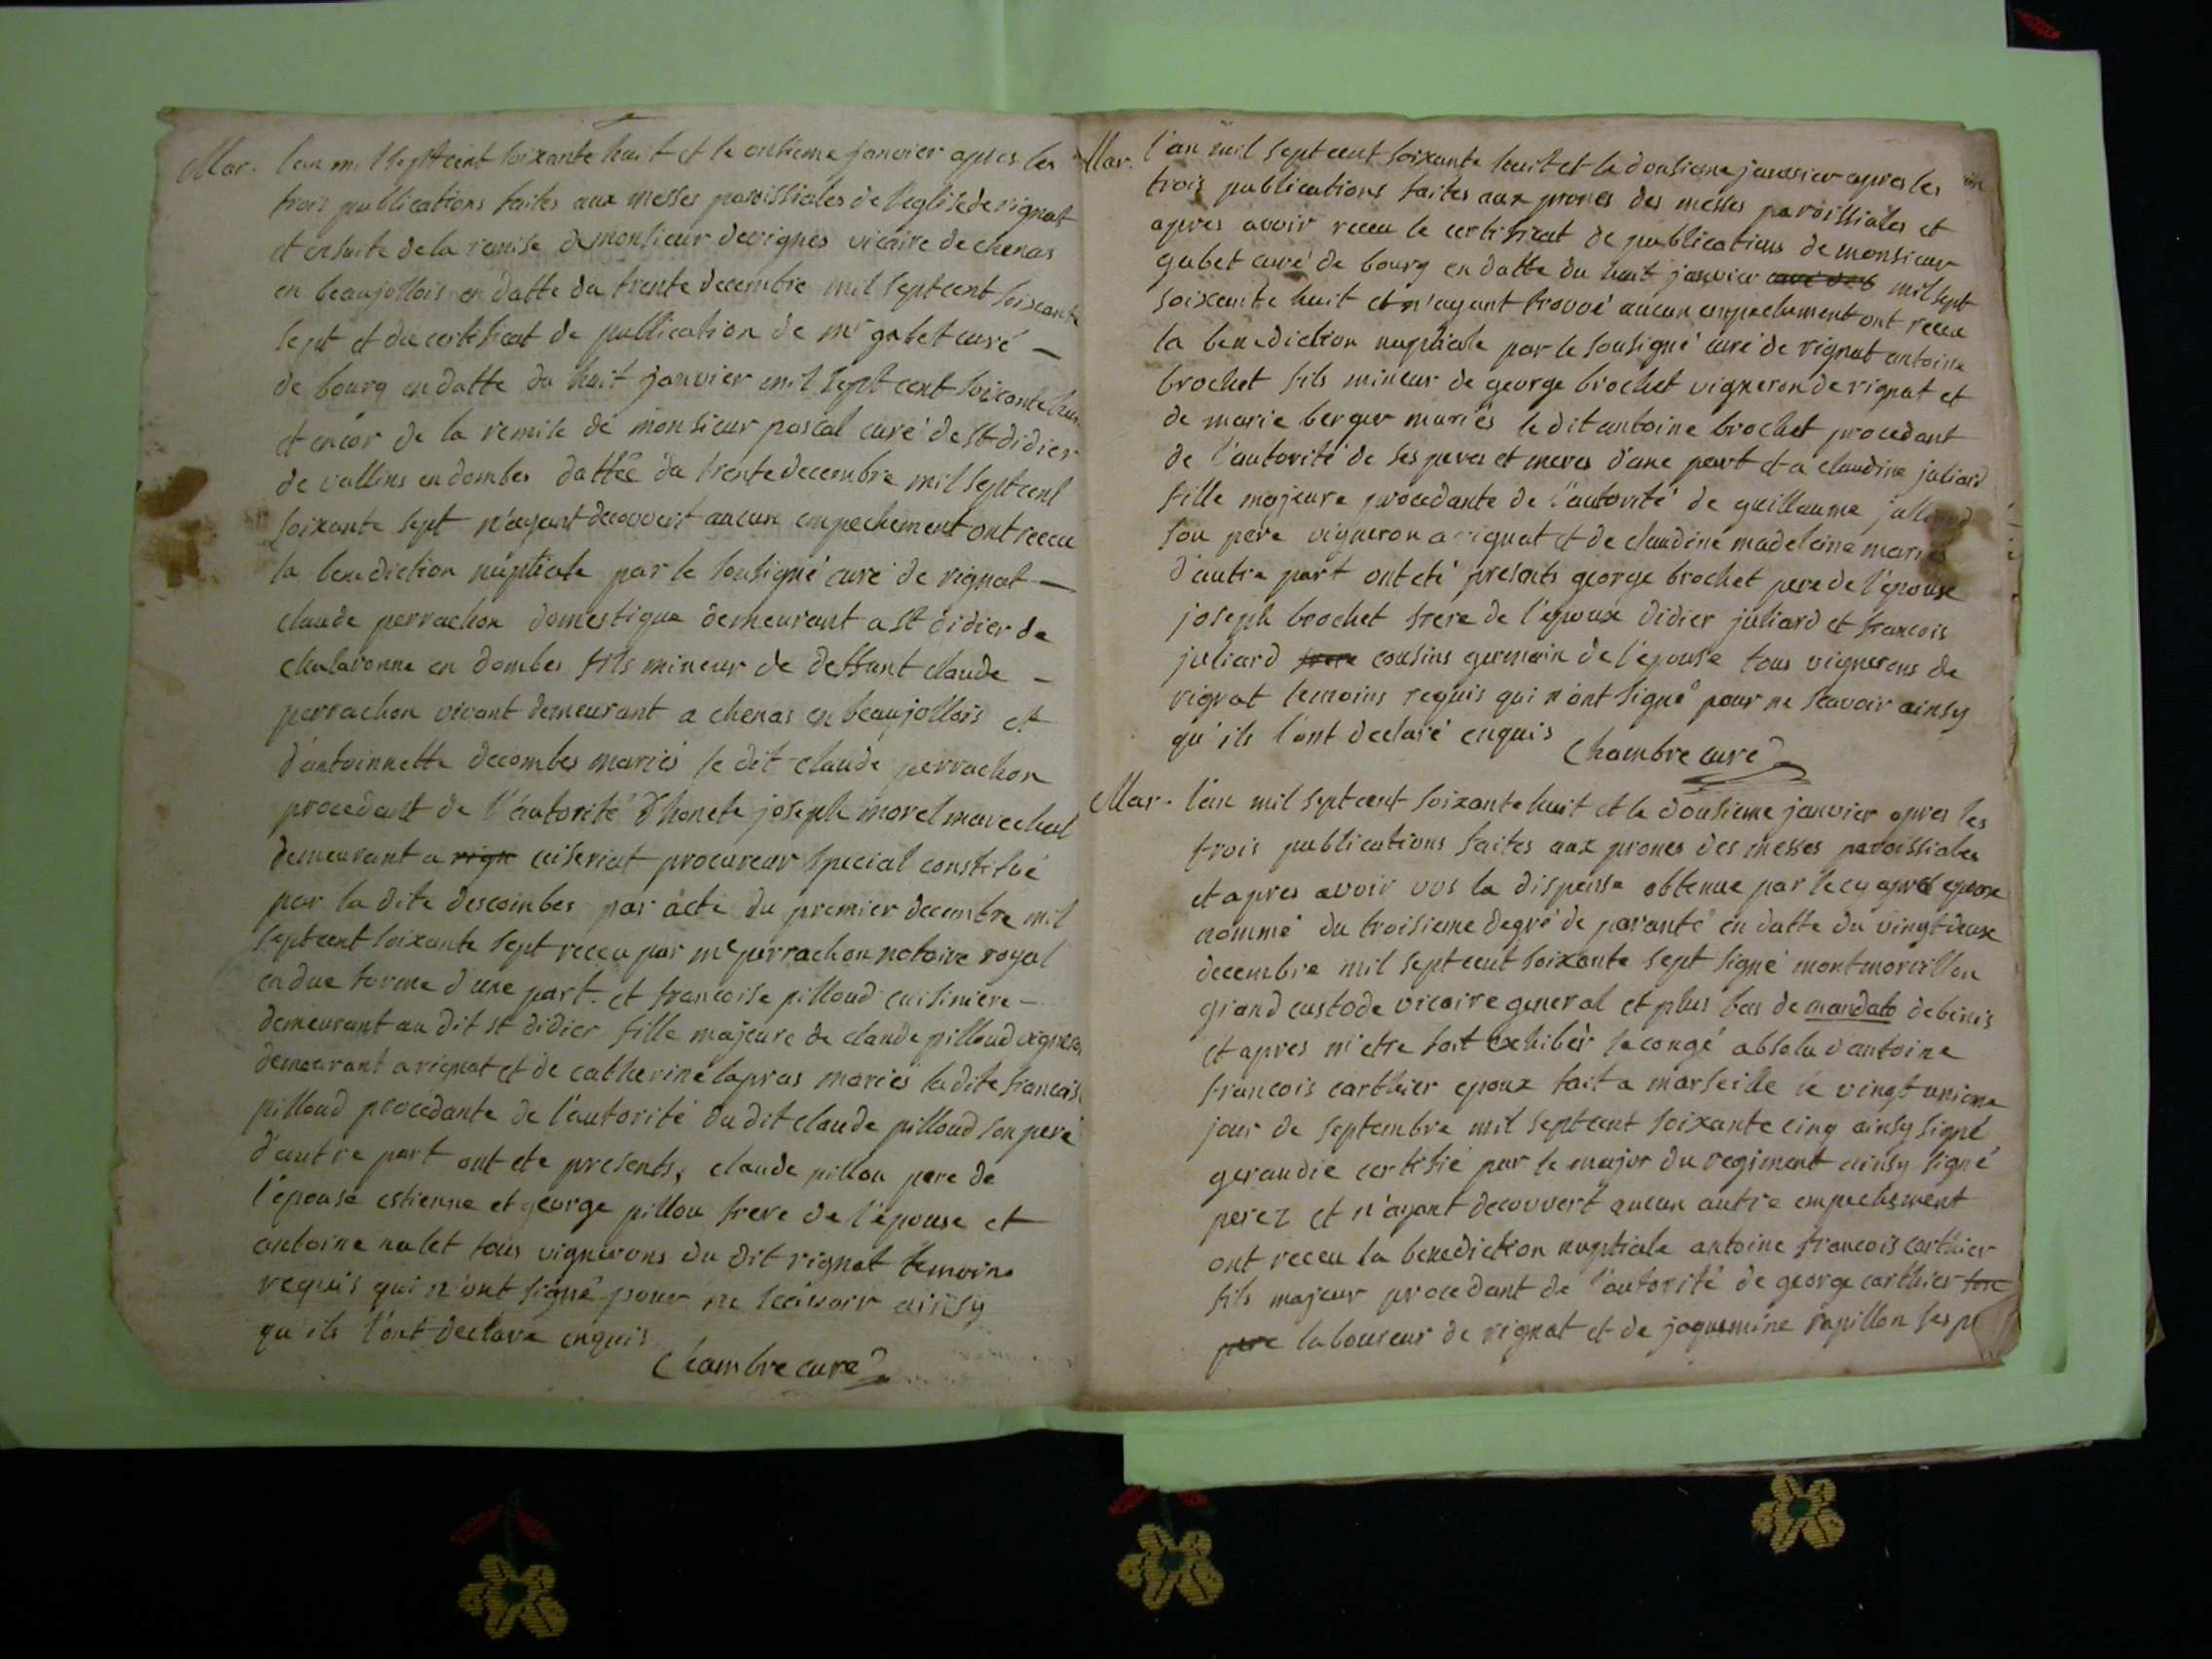 Mar. l'an mil septcent soixante huit et le onsieme janvier apres les
trois publications faites aux messes paroissiales de l'eglise de rignat
et ensuite de la remise de monsieur devignes vicaire de chenas
en beaujollois en datte du trente decembre mil septcent soixante
sept et du certificat de publication de mr gabet curé —
de bourg en datte du huit janvier mil sept cent soixante huit
et encor de la remise de monsieur pascal curé de st didier
de vallins en dombes dattée du trente decembre mil septcent
soixante sept n'ayant decouvert aucun empechement ont receu
la benediction nuptiale par le sousigné curé de rignat —
claude perrachon domestique demeurant a st didier de
chalaronne en dombes fils mineur de deffunt claude —
perrachon vivant demeurant a chenas en beaujollois et
d'antoinnette decombes mariés le dit claude perrachon
procedant de l'autorité d'honete joseph morel marechal
demeurant a rign ceiseriat procureur special constitué
par la dite descombes par acte du premier decembre mil
septcent soixante sept receu par me perrachon notaire royal
en due forme d'une part. et francoise pilloud cuisiniere —
demeurant au dit st didier fille majeure de claude pilloud vigneron
demeurant a rignat et de catherine lapras mariés ladite francoise
pilloud procedante de l'autorité du dit claude pilloud son pere
d'autre part ont ete presents, claude pillou pere de
l'épouse estienne et george pillou frere de l'épouse et
antoine nalet tous vignerons du dit rignat temoins
requis qui n'ont signé pour ne scavoir ainsy
qu'ils l'ont declare enquis
Chambre curé
Mar. l'an mil septcent soixante huit et le dousieme janvier apres les
trois publications faites aux prones des messes paroissiales et
apres avoir receu le certificat de publications de monsieur
gabet curé de bourg en datte du huit janvier curé deb mil sept
soixante huit et n'ayant trouvé aucun empechement ont receu
la benediction nuptiale par le sousigné curé de rignat antoine
brochet fils mineur de george brochet vigneron de rignat et
de marie berger mariés le dit antoine brochet procedant
de l'autorité de ses peres et meres d'une part et a claudine juliard
fille majeure procedante de l'autorité de guillaume julliard
son pere vigneron a rignat et de claudine madeleine mariés
d'autre part ont eté presents george brochet pere de l'épouse
joseph brochet frere de l'époux didier juliard et francois
juliard frere cousins germain de l'épouse tous vignerons de
rignat temoins requis qui n'ont signé pour ne scavoir ainsy
qu'ils l'ont declaré enquis
Chambre curé
Mar. l'an mil septcent soixante huit et le dousieme janvier apres les
trois publications faites aux prones des messes paroissiales
et apres avoir vus la dispense obtenue par le cy apres epoux
nommé du troisieme degré de paranté en datte du vingt deux
decembre mil septcent soixante sept signé montmorillon
grand custode vicaire general et plus bas de mandato debenis
et apres m'etre fait exhiber le congé absolu d'antoine
francois carthier epoux fait a marseille le vingt unieme
jour de septembre mil septcent soixante cinq ainsy signé
geraudie certifié par le major du regiment ainsy signé
perez et n'ayant decouvert aucun autre empechement
ont receu la benediction nuptiale antoine francois carthier
fils majeur procedant de l'autorité de george carthier son
pere laboureur de rignat et de joquemine papillon ses